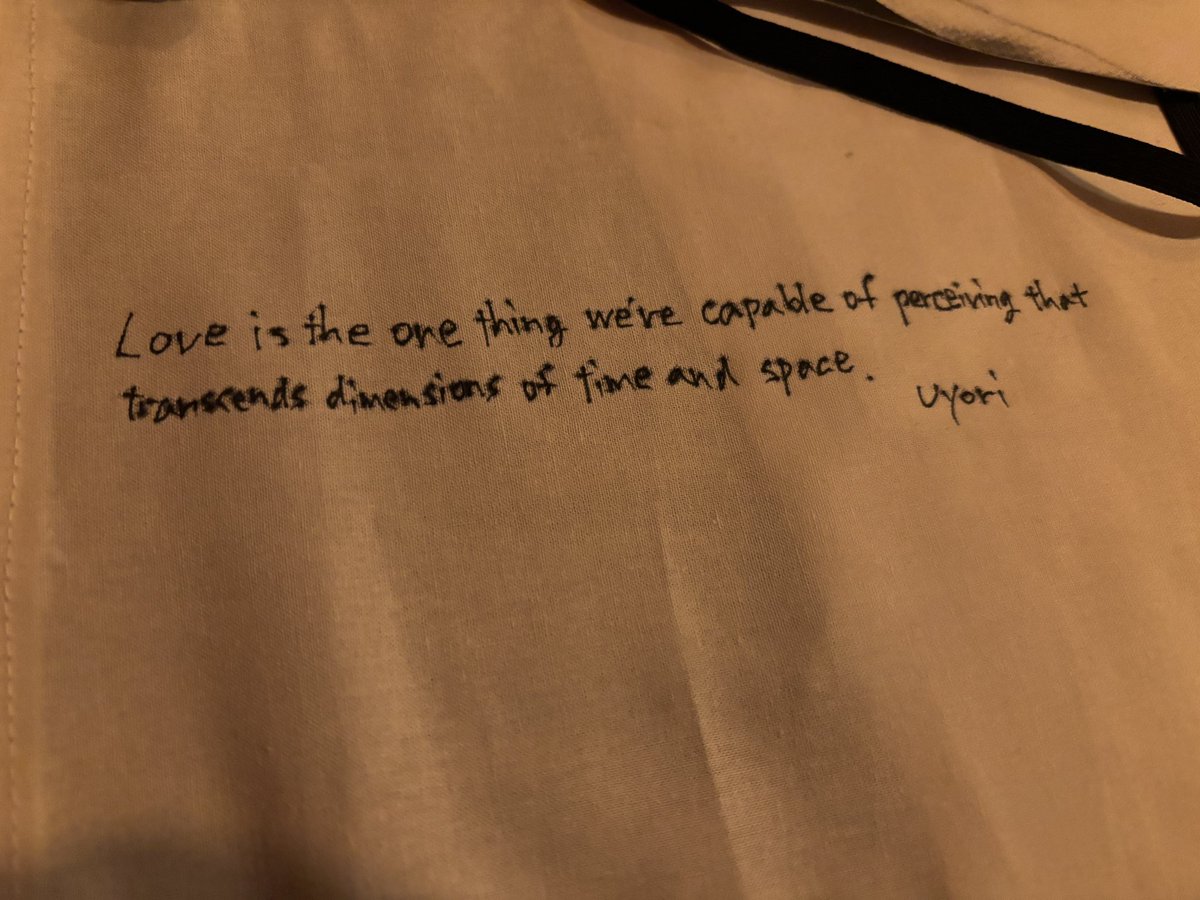 Love is the one thing we're capable of perceiving that
transcends dimensions of time and space.
Uyori